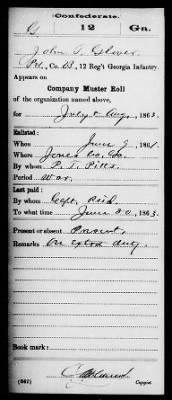 Confederate.
G 12 Ga.
John T. Glover
Pvt., Co. B, 12 Reg't Georgia Infantry.
Appears on
Company Muster Roll
of the organization named above,
for July & Aug, 1863.
Enlisted:
When June 9, 1861.
Where Jones Co. Ga.
By whom P. T. Pitts
Period War.
Last paid:
By whom Capt. Reid
To what time June 30, 1863.
Present or absent Present
Remarks On extra duty.
Book mark:
(641) Copyist.